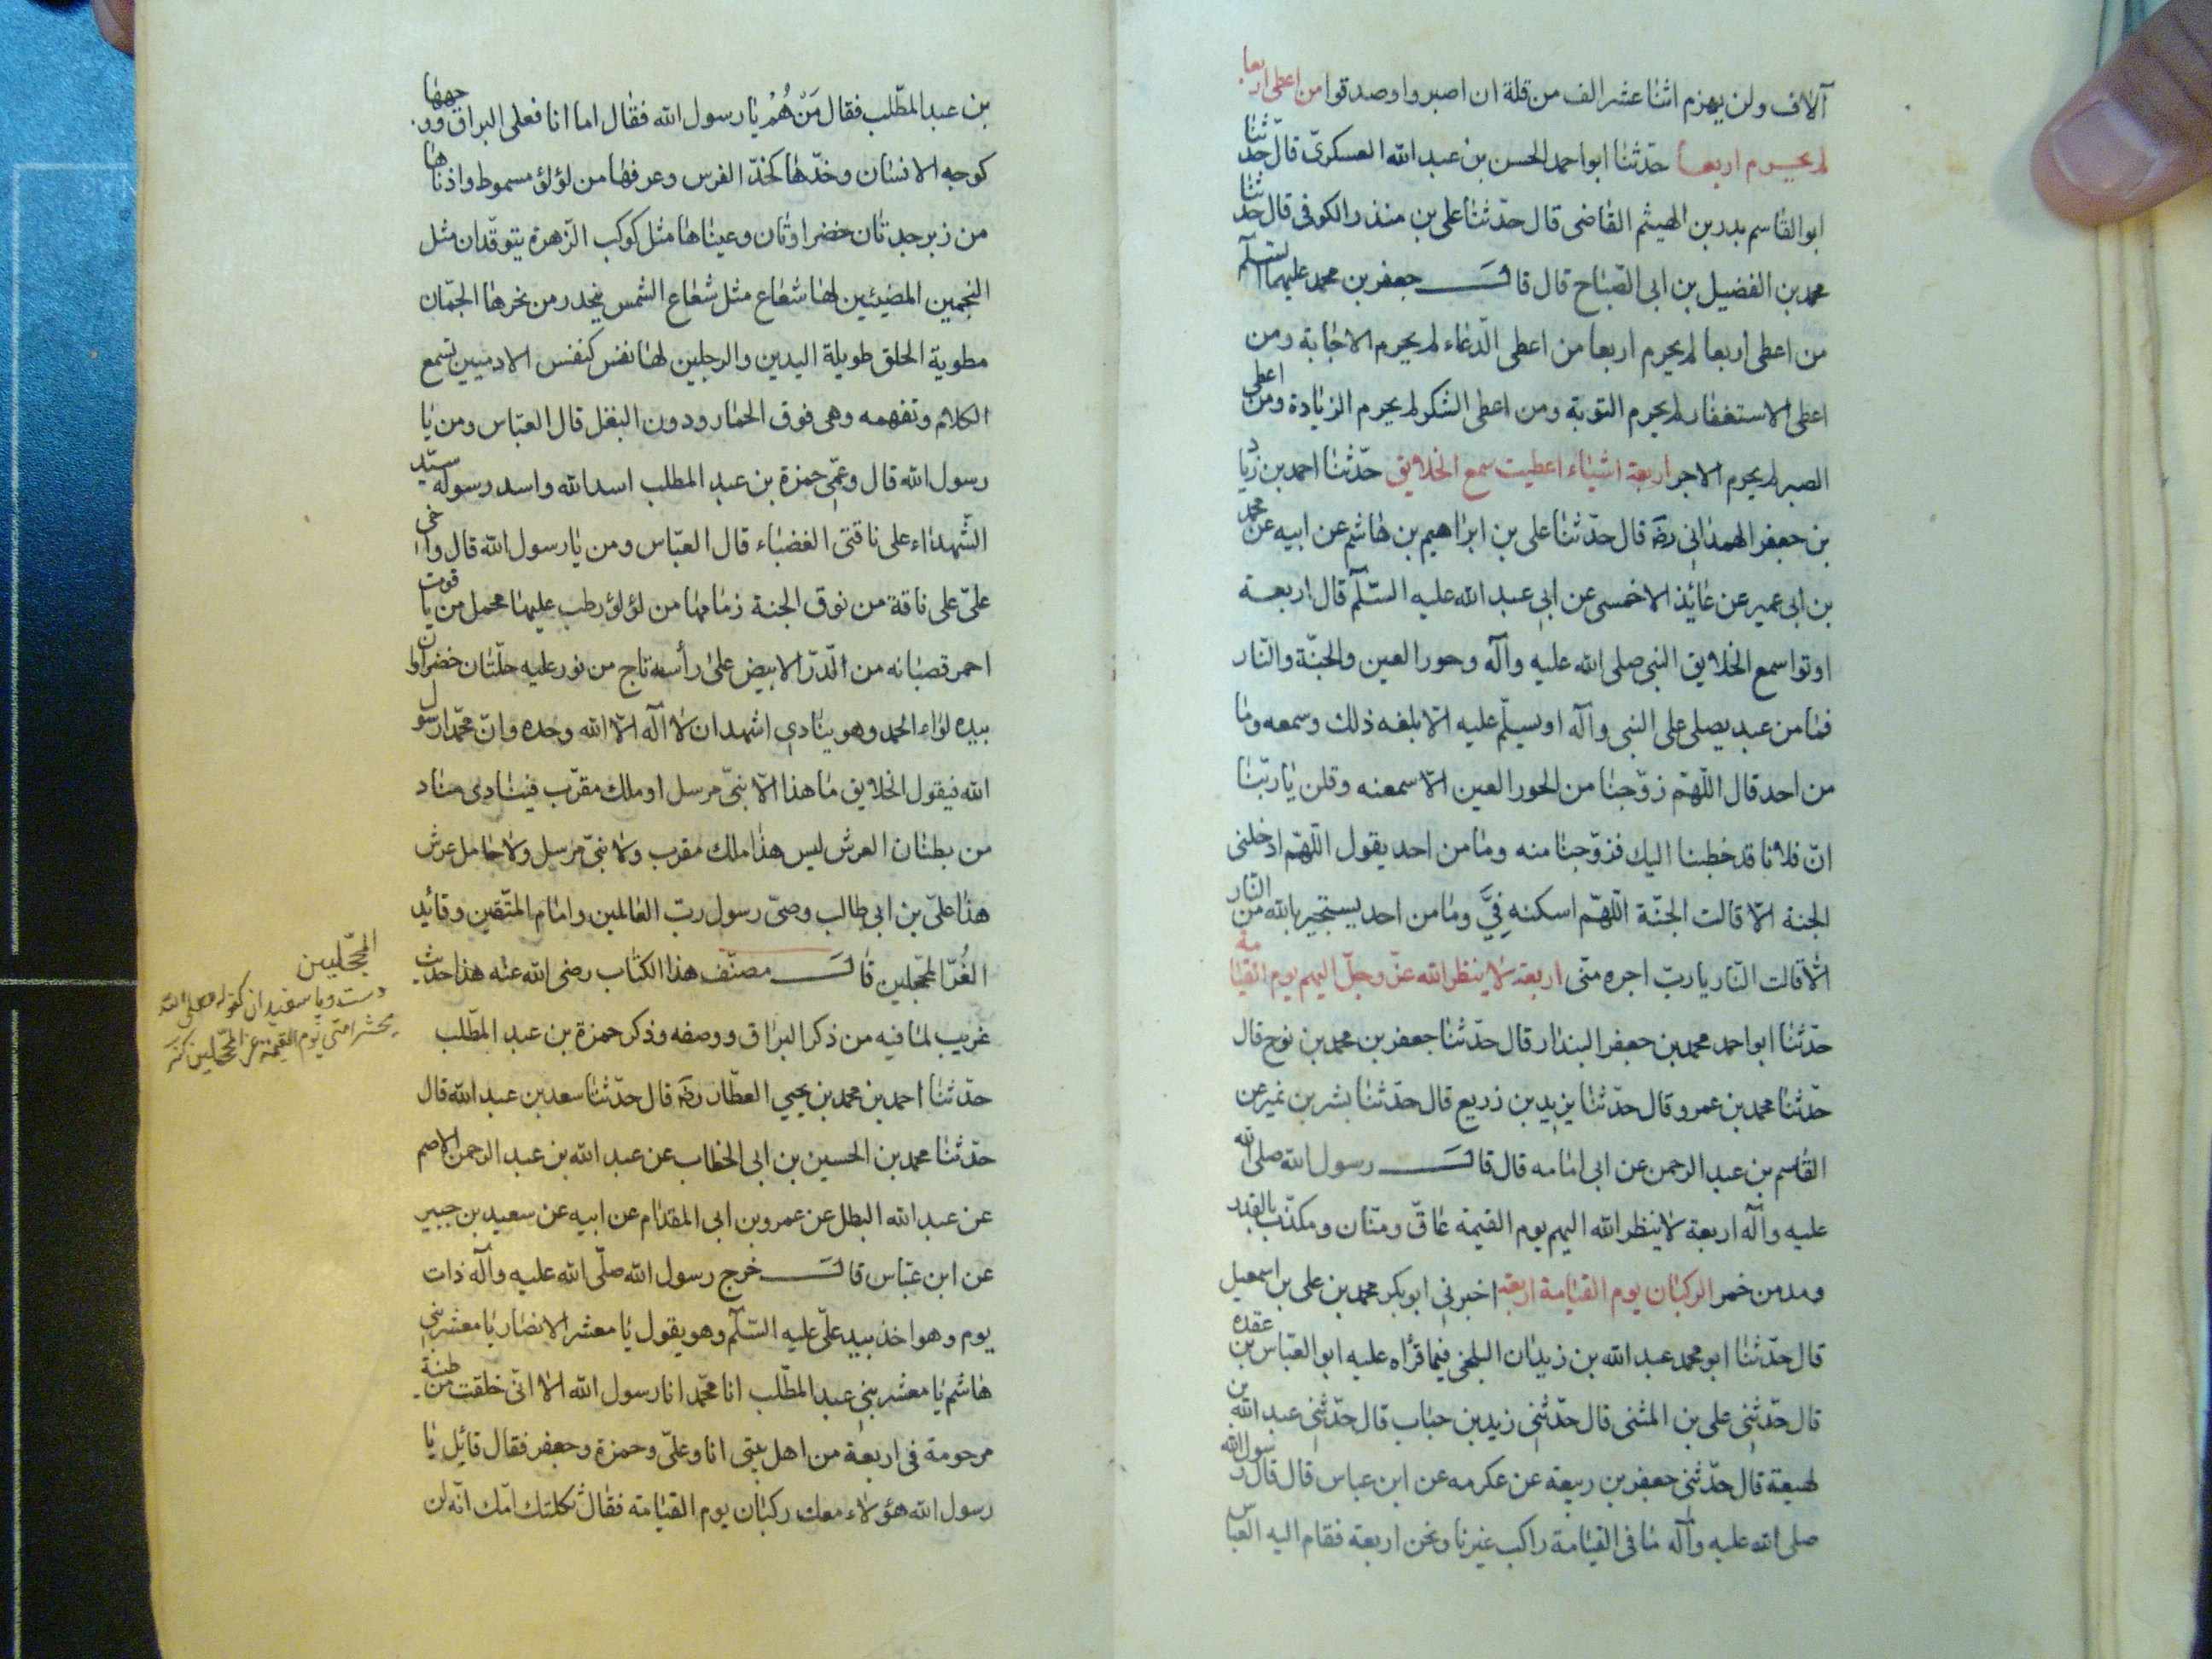 آلاف ولن يهزم اثنا عشر الف من قلة ان اصبروا وصدقوا من اعطى اربعا
لم يحرم اربعا حدّثنا ابو احمد الحسن بن عبد الله العسكرىّ قال حدثنا
ابو القاسم بدر بن الهيثم القاضى قال حدّثنا على بن منذر الكوفى قال حدثنا
محمد بن الفضيل بن ابى الصّباح قال قال جعفر بن محمد عليهما السلم
من اعطى أربعا لم يحرم اربعا من اعطى الدّعاء لم يحرم الاجابة ومن
اعطى الاستغفار لم يحرم التوبة ومن اعطى الشكر لم يحرم الزيادة ومن اعطى
الصبر لم يحرم الاجر اربعة اشياء اعطيت سمع الخلايق حدّثنا احمد بن زياد
بن جعفر الهمدانى رضه قال حدّثنا على بن ابراهيم بن هاشم عن ابيه عن محمد
بن ابى عمير عن عائذ الاخمسى عن ابى عبد الله عليه السّلم قال اربعة
اوتوا سمع الخلايق النبى صلى الله عليه وآله وحور العين والجنّة والنّار
فما من عبد يصلى على النبى وآله او يسلّم عليه الّا بلغه ذلك وسمعه وما
من احد قال اللّهمّ زوّجنا من الحور العين الّا سمعنه وقلن يا ربّنا
انّ فلانا قد خطبنا اليك فزوّجنا منه وما من احد يقول اللّهمّ ادخلنى
الجنة الّا قالت الجنّة اللّهمّ اسكنه فِيَّ وما من احد يستجير بالله من النّار
الّا قالت النّار يا ربّ اجره منّى اربعة لا ينظر الله عزّ وجلّ اليهم يوم القيامة
حدّثنا ابو احمد محمد بن جعفر البندار قال حدّثنا جعفر بن محمد بن نوح قال
حدّثنا محمد بن عمرو قال حدّثنا يزيد بن زريع قال حدّثنا بشر بن نمير عن
القاسم بن عبد الرحمن عن ابى امامه قال قال رسول الله صلى الله
عليه وآله اربعة لا ينظر الله اليهم يوم القيمة عاقّ ومنّان ومكذّب بالقدر
ومدمن خمر الركبان يوم القيامة اربعة اخبرنى ابو بكر محمد بن على بن اسمعيل
قال حدّثنا ابو محمد عبد الله بن زيدان البلخى فيما قرأه عليه ابو العبّاس بن عقده
قال حدّثنى على بن المثنى قال حدّثنى زيد بن حباب قال حدّثنى عبد الله بن
لهيعة قال حدّثنى جعفر بن ربيعة عن عكرمه عن ابن عباس قال قال رسول الله
صلى الله عليه وآله ما فى القيامة راكب غيرنا ونحن اربعة فقام اليه العباس
بن عبد المطّلب فقال مَنْ هُمْ يا رسول الله فقال اما انا فعلى البراق ووجهها
كوجه الانسان وخدّها كخدّ الفرس وعرفها من لؤلؤ مسموط واذناها
من زبرجدتان خضراوتان وعيناها مثل كوكب الزّهرة يتوقّدان مثل
النجمين المضيئين لها شعاع مثل شعاع الشمس ينحدر من نحرها الجمّان
مطوية الحلق طويلة اليدين والرجلين لها نفس كنفس الادميين تسمع
الكلام وتفهمه وهى فوق الحمار ودون البغل قال العبّاس ومن يا
رسول الله قال وعمّى حمزة بن عبد المطلب اسد الله واسد رسوله سيّد
الشّهداء على ناقتى الغضباء قال العبّاس ومن يا رسول الله قال واخى
علىّ على ناقة من نوق الجنة زمامها من لؤلؤ رطب عليها محمل من ياقوت
احمر قصبانه من الدّرّ الابيض على رأسه تاج من نور عليه حلّتان خضراوان
بيده لواء الحمد وهو ينادى اشهد ان لا اله الّا الله وحده وانّ محمّدا رسول
الله فيقول الخلايق ما هذا الّا نبىّ مرسل او ملك مقرّب فينادى مناد
من بطنان العرش ليس هذا ملك مقرب ولا نبىّ مرسل ولا حامل عرش
هذا علىّ بن ابى طالب وصىّ رسول ربّ العالمين وامام المتّقين وقائد
الغُرّ المحجّلين قال مصنّف هذا الكتاب رضى الله عنه هذا حديث
غريب لما فيه من ذكر البراق ووصفه وذكر حمزة بن عبد المطّلب
حدّثنا احمد بن محمد بن يحيى العطّار رضه قال حدّثنا سعد بن عبد الله قال
حدّثنا محمد بن الحسين بن ابى الخطاب عن عبد الله بن عبد الرحمن الاصم
عن عبد الله البطل عن عمرو بن ابى المقدام عن ابيه عن سعيد بن جبير
عن ابن عبّاس قال خرج رسول الله صلّى الله عليه وآله ذات
يوم وهو اخذ بيد علىّ عليه السّلم وهو يقول يا معشر الانصار يا معشر بنى
هاشم يا معشر بنى عبد المطّلب انا محمّد انا رسول الله الا انّى خلقت من طينة
مرحومة فى اربعة من اهل بيتى انا وعلىّ وحمزة وجعفر فقال قائل يا
رسول الله هؤلاء معك ركبان يوم القيامة فقال ثكلتك امّك انّه لن
المحجّلين
دست و پا سفيدان كقوله صلى الله
يحشر امتى يوم القيمة غرّ المحجّلين كنز